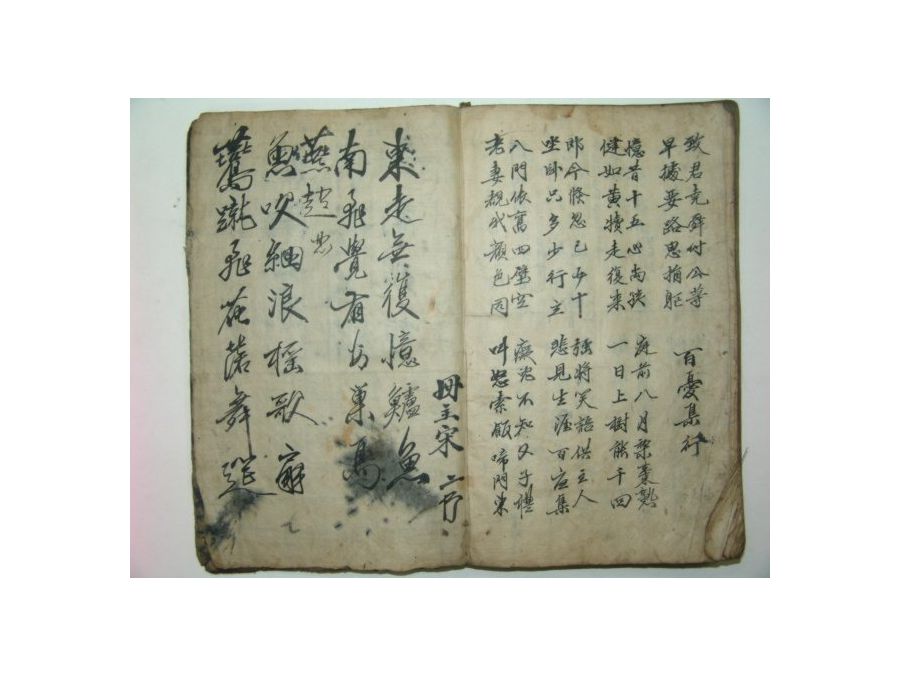 致君堯舜付公等
早據要路思捐軀
百憂集行
憶昔十五心尚孩
健如黃犢走復來
庭前八月梨棗熟
一日上樹能千回
即今倏忽已五十
坐臥只多少行立
強將笑語供主人
悲見生涯百憂集
入門依舊四壁空
老妻覩我顏色同
癡兒不知父子禮
叫怒索飯啼門東
母主宋
東走無復憶鱸魚
南飛覺有安巢鳥
燕趙
魚吹細浪搖歌扇
鷰蹴飛花落舞筵